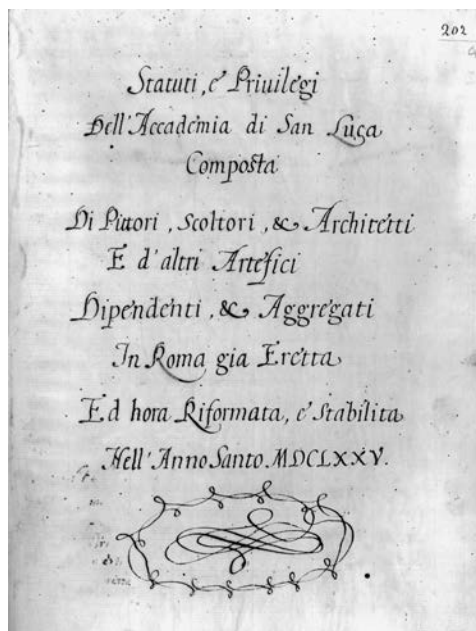 202
Statuti, e Priuilegi
Dell'Accademia di San Luca
Composta
Di Pittori, Scoltori, & Architetti
E d'altri Artefici
Dipendenti, & Aggregati
In Roma gia Eretta
Ed hora Riformata, e stabilita
Nell'Anno Santo MDCLXXV.